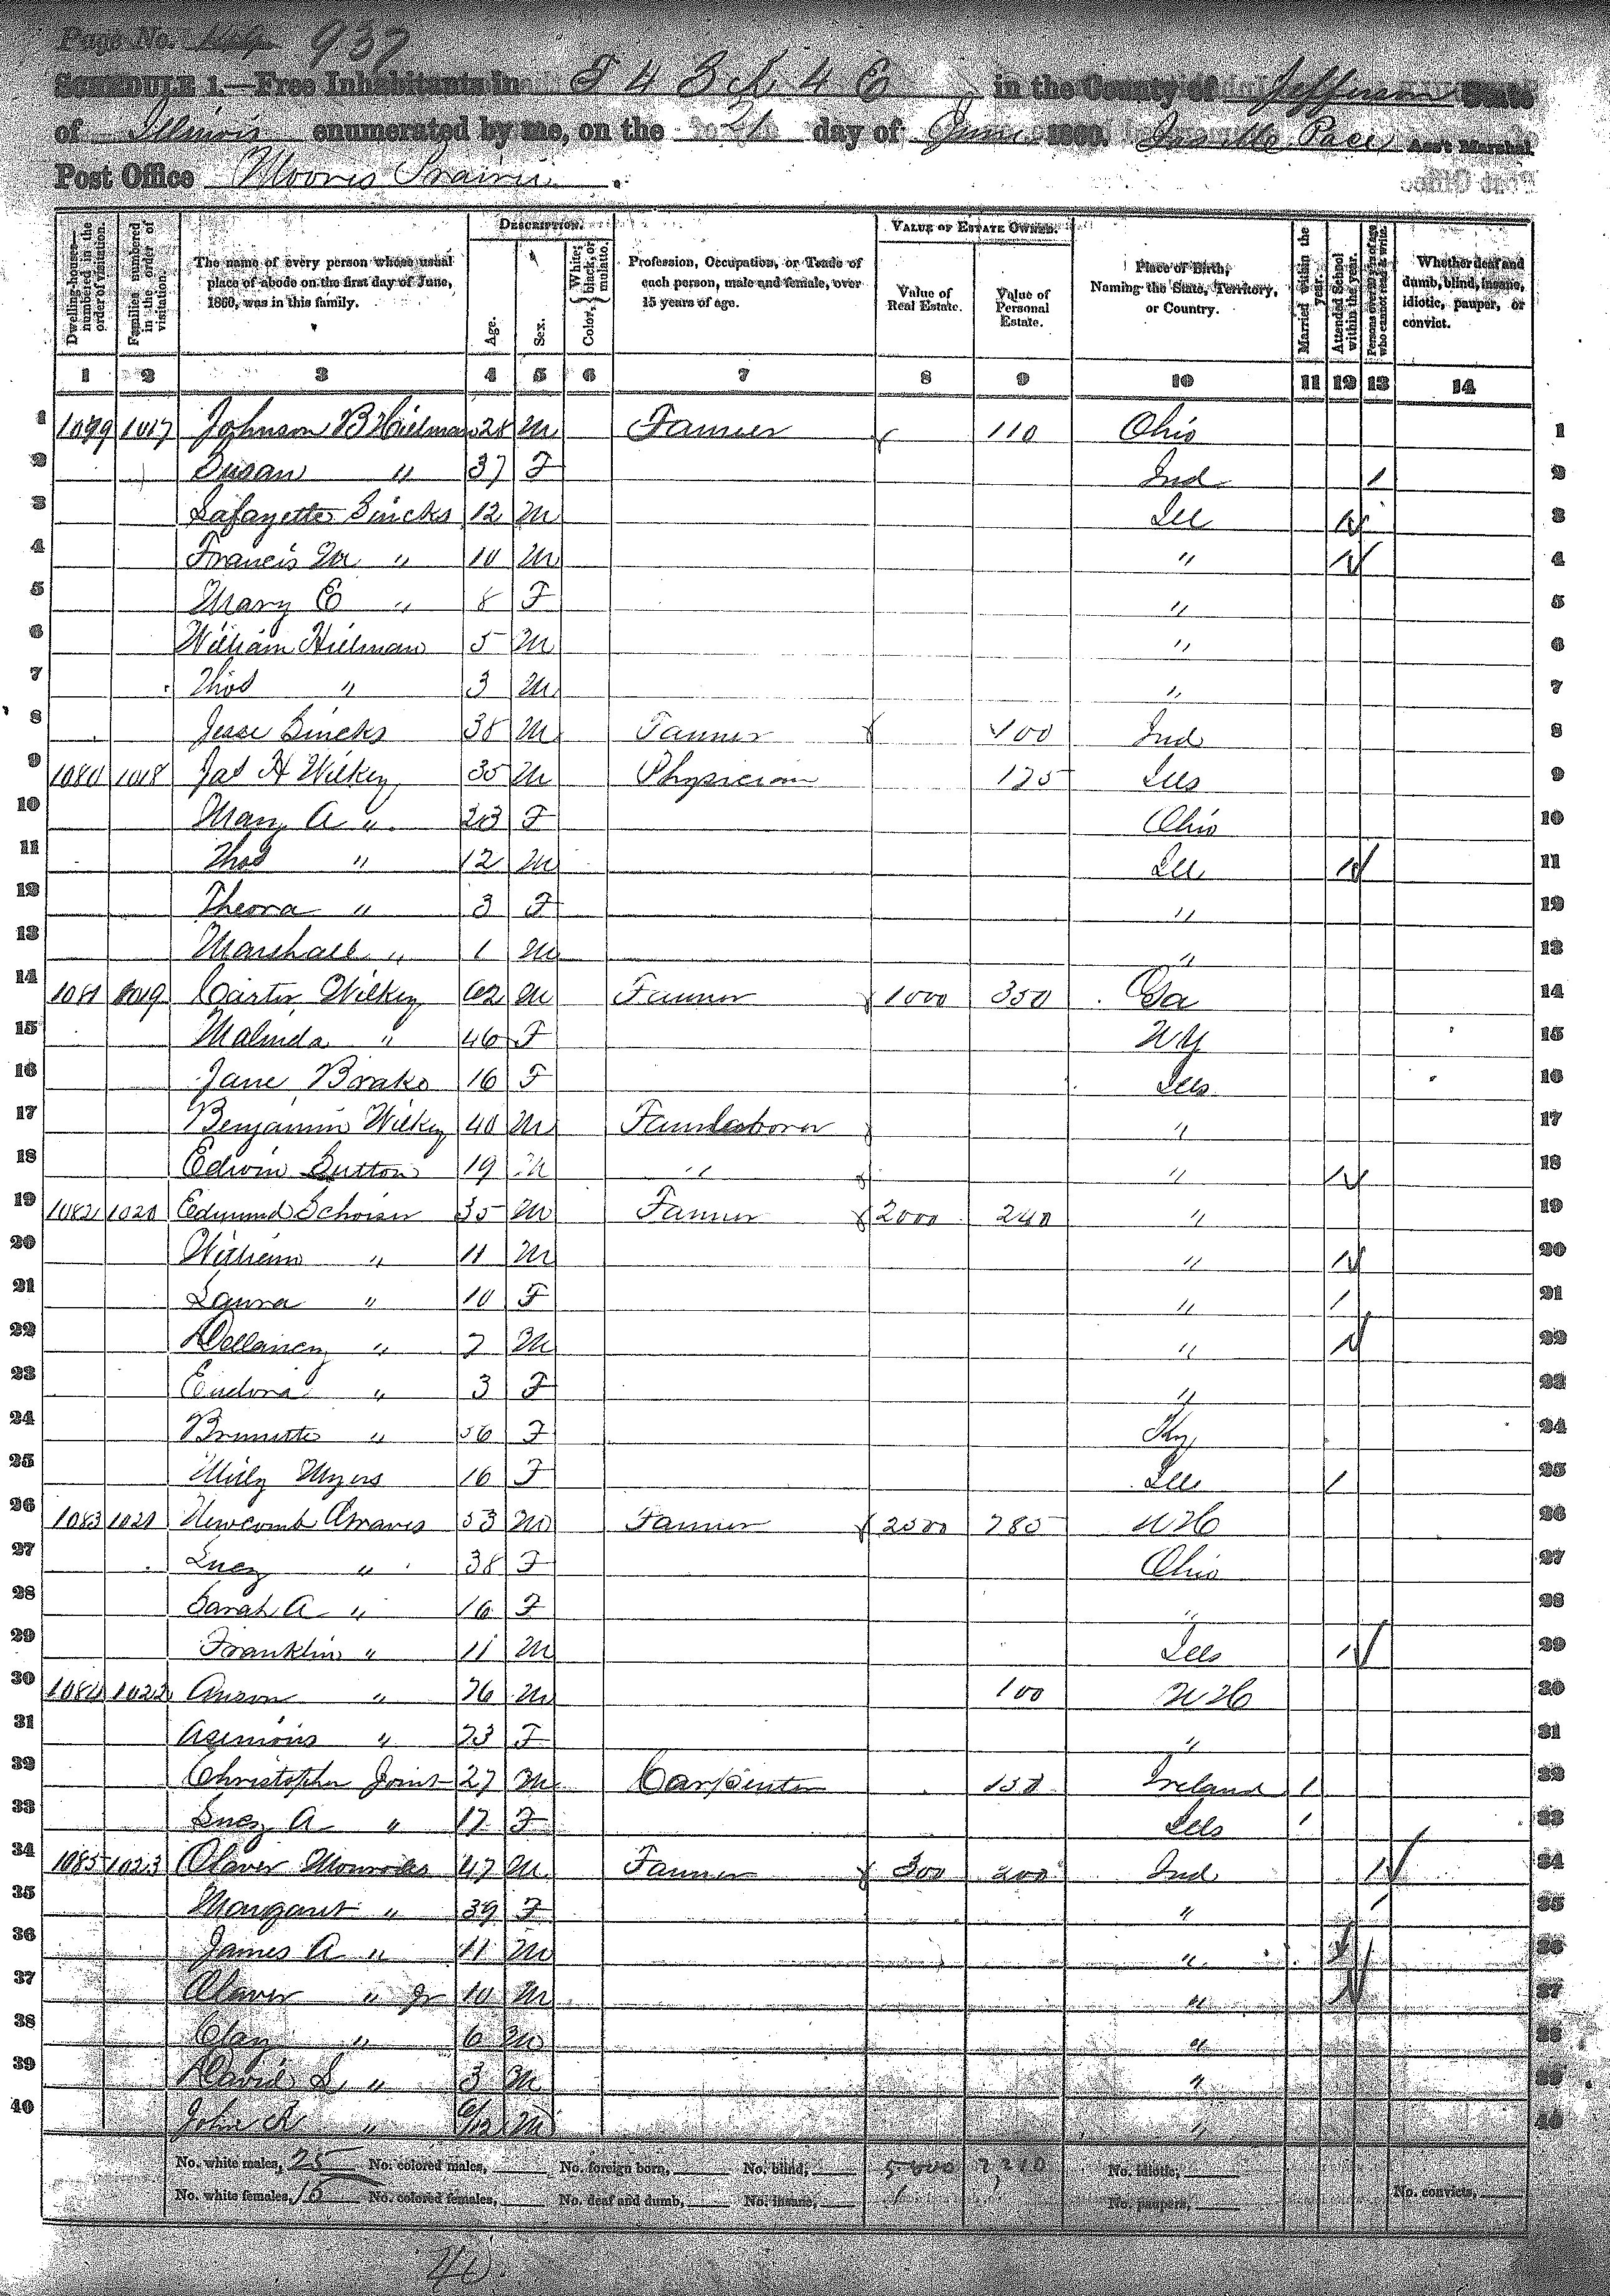 Page No. 937
SCHEDULE 1.—Free Inhabitants in T 4 S R 4 E in the County of Jefferson State
of Illinois enumerated by me, on the 21 day of June 1860. Jas M Pace Ass't Marshal
Post Office Moores Prairie
Dwelling-houses—numbered in the order of visitation.
Families numbered in the order of visitation.
The name of every person whose usual place of abode on the first day of June, 1860, was in this family.
DESCRIPTION.
Age.
Sex.
Color, { White, black, or mulatto.
Profession, Occupation, or Trade of each person, male and female, over 15 years of age.
VALUE OF ESTATE OWNED.
Value of Real Estate.
Value of Personal Estate.
Place of Birth, Naming the State, Territory, or Country.
Married within the year.
Attended School within the year.
Persons over 20 y'rs of age who cannot read & write.
Whether deaf and dumb, blind, insane, idiotic, pauper, or convict.
1 2 3 4 5 6 7 8 9 10 11 12 13 14
1 1079 1017 Johnson B Hielman 28 M Farmer 110 Ohio 1
2 Susan " 37 F Ind / 2
3 Lafayette 12 M Ill / 3
4 Francis M " 10 M " / 4
5 Mary E " 8 F " 5
6 William Hielman 5 M " 6
7 Thos " 3 M " 7
8 Jesse 38 M Farmer 100 Ind 8
9 1080 1018 Jas H Wilkey 35 M Physician 125 Ills 9
10 Mary A " 23 F Ohio 10
11 Thos " 12 M Ill / 11
12 Theora " 3 F " 12
13 Marshall " 1 M " 13
14 1081 1019 Carter Wilkey 62 M Farmer 1000 350 Ga 14
15 Malinda " 46 F NY 15
16 Jane Brake 16 F Ills 16
17 Benjamin Wilkey 40 M Farm laborer " 17
18 Edwin Sutton 19 M " " / 18
19 1082 1020 Edmund 35 M Farmer 2000 240 " 19
20 William " 11 M " / 20
21 Laura " 10 F " / 21
22 Dellancey " 7 M " / 22
23 Eudora " 3 F " 23
24 Brunette " 56 F Ky 24
25 Milly Myers 16 F Ill / 25
26 1083 1021 Newcomb Graves 53 M Farmer 2500 785 NH 26
27 Lucy " 38 F Ohio 27
28 Sarah A " 16 F " 28
29 Franklin " 11 M Ills / 29
30 1084 1022 Anson " 76 M 100 NH 30
31 " 73 F " 31
32 Christopher Joint 27 M Carpenter 150 Ireland / 32
33 Lucy A " 17 F Ills / 33
34 1085 1023 Olaver 47 M Farmer 300 200 Ind / 34
35 Margaret " 39 F " / 35
36 James A " 11 M " / 36
37 Olaver " Jr 10 M " / 37
38 Clay " 6 M " 38
39 David L " 3 M " 39
40 John R " 6/12 M " 40
No. white males, 25 No. colored males, No. foreign born, No. blind, 5800 2210 No. idiotic,
No. white females, 15 No. colored females, No. deaf and dumb, No. insane, No. paupers, No. convicts,
40